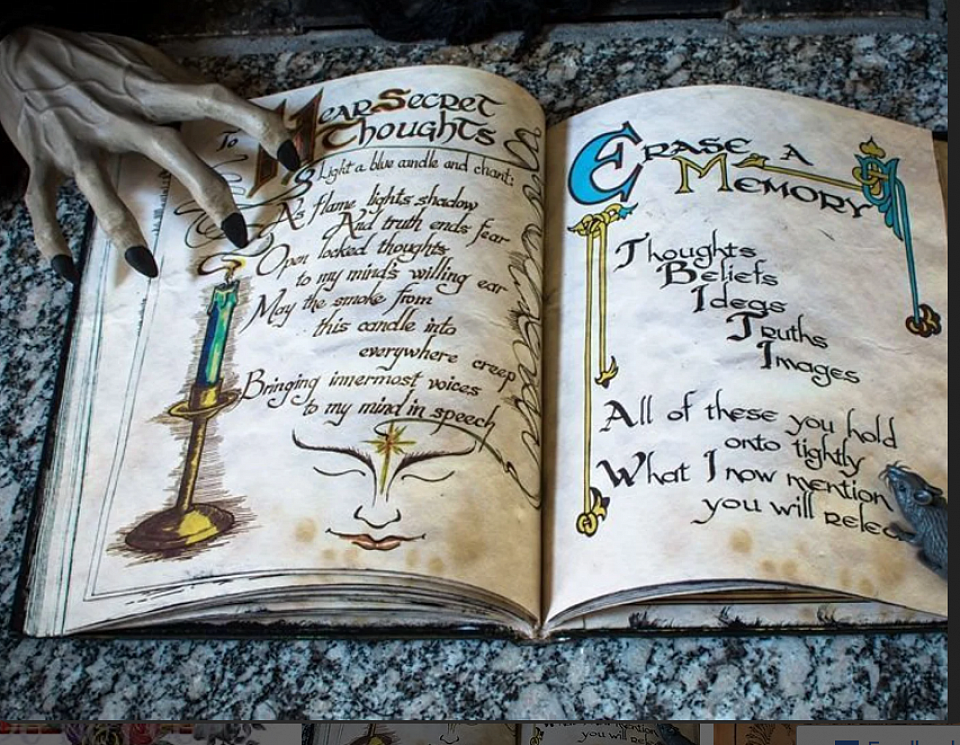 To Hear Secret
Thoughts
Light a blue candle and chant:
As flame lights shadow
And truth ends fear
Open locked thoughts
to my mind's willing ear
May the smoke from
this candle into
everywhere creep
Bringing innermost voices
to my mind in speech
Erase a
Memory
Thoughts
Beliefs
Ideas
Truths
Images
All of these you hold
onto tightly
What I now mention
you will relea